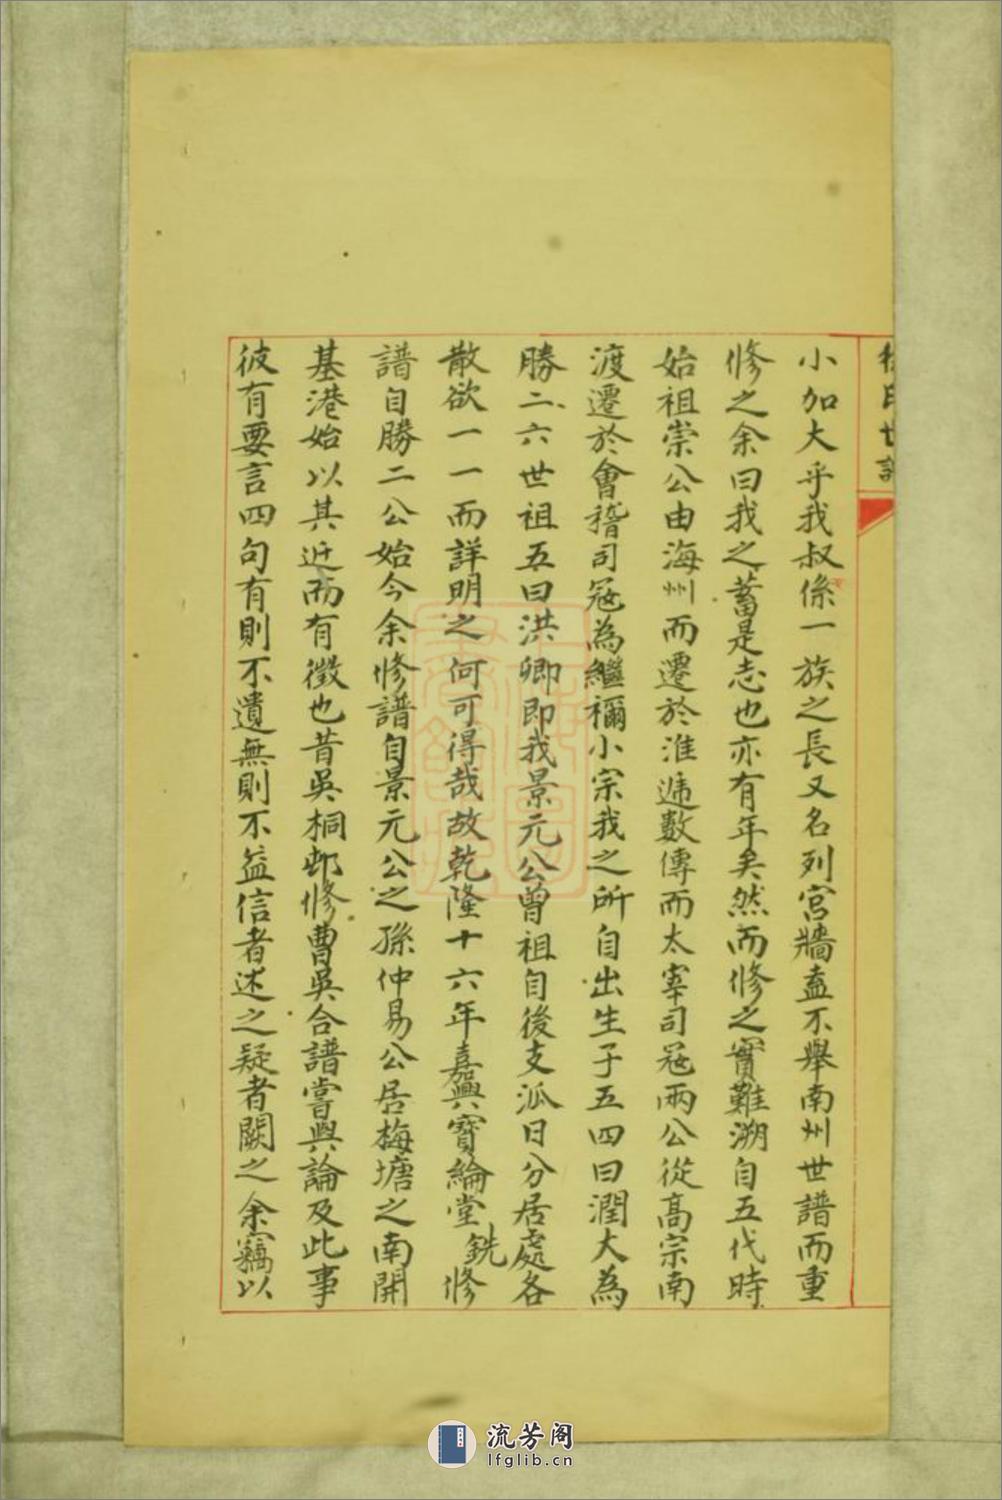 徐氏世譜
小加大乎我叔係一族之長又名列宮牆盍不舉南州世譜而重
修之余曰我之蓄是志也亦有年矣然而修之實難溯自五代時
始祖崇公由海州而遷於淮遞數傳而太宰司冦兩公從高宗南
渡遷於會稽司冦為繼禰小宗我之所自出生子五四曰潤大為
勝二六世祖五曰洪卿即我景元公曾祖自後支派日分居處各
散欲一一而詳明之何可得哉故乾隆十六年嘉興寶綸堂銑修
譜自勝二公始今余修譜自景元公之孫仲易公居梅塘之南開
基港始以其近而有徵也昔吳桐邨修曹吳合譜嘗與論及此事
彼有要言四句有則不遺無則不益信者述之疑者闕之余竊以
流芳阁
lfglib.cn